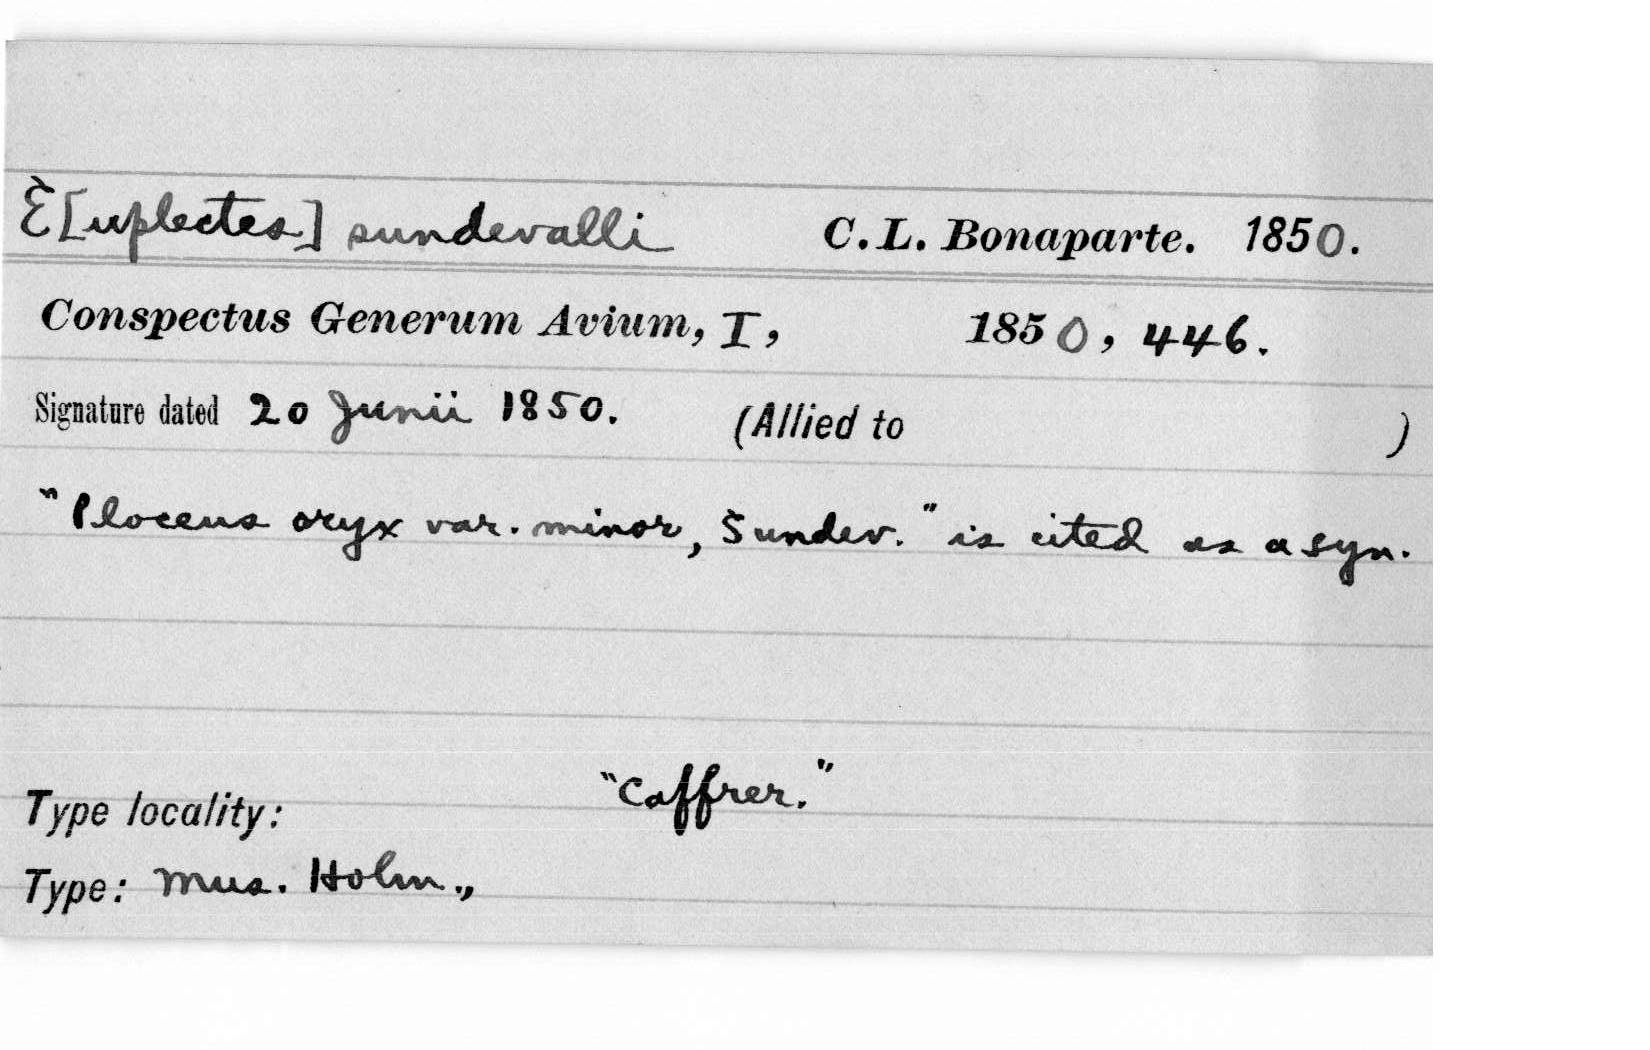 E[uplectes] sundevalli C. L. Bonaparte. 1850.
Conspectus Generum Avium, I, 1850, 446.
Signature dated 20 Junii 1850. (Allied to )
"Ploceus oryx var. minor, Sundev." is cited as a syn.
Type locality: "Caffrer."
Type: Mus. Holm.,